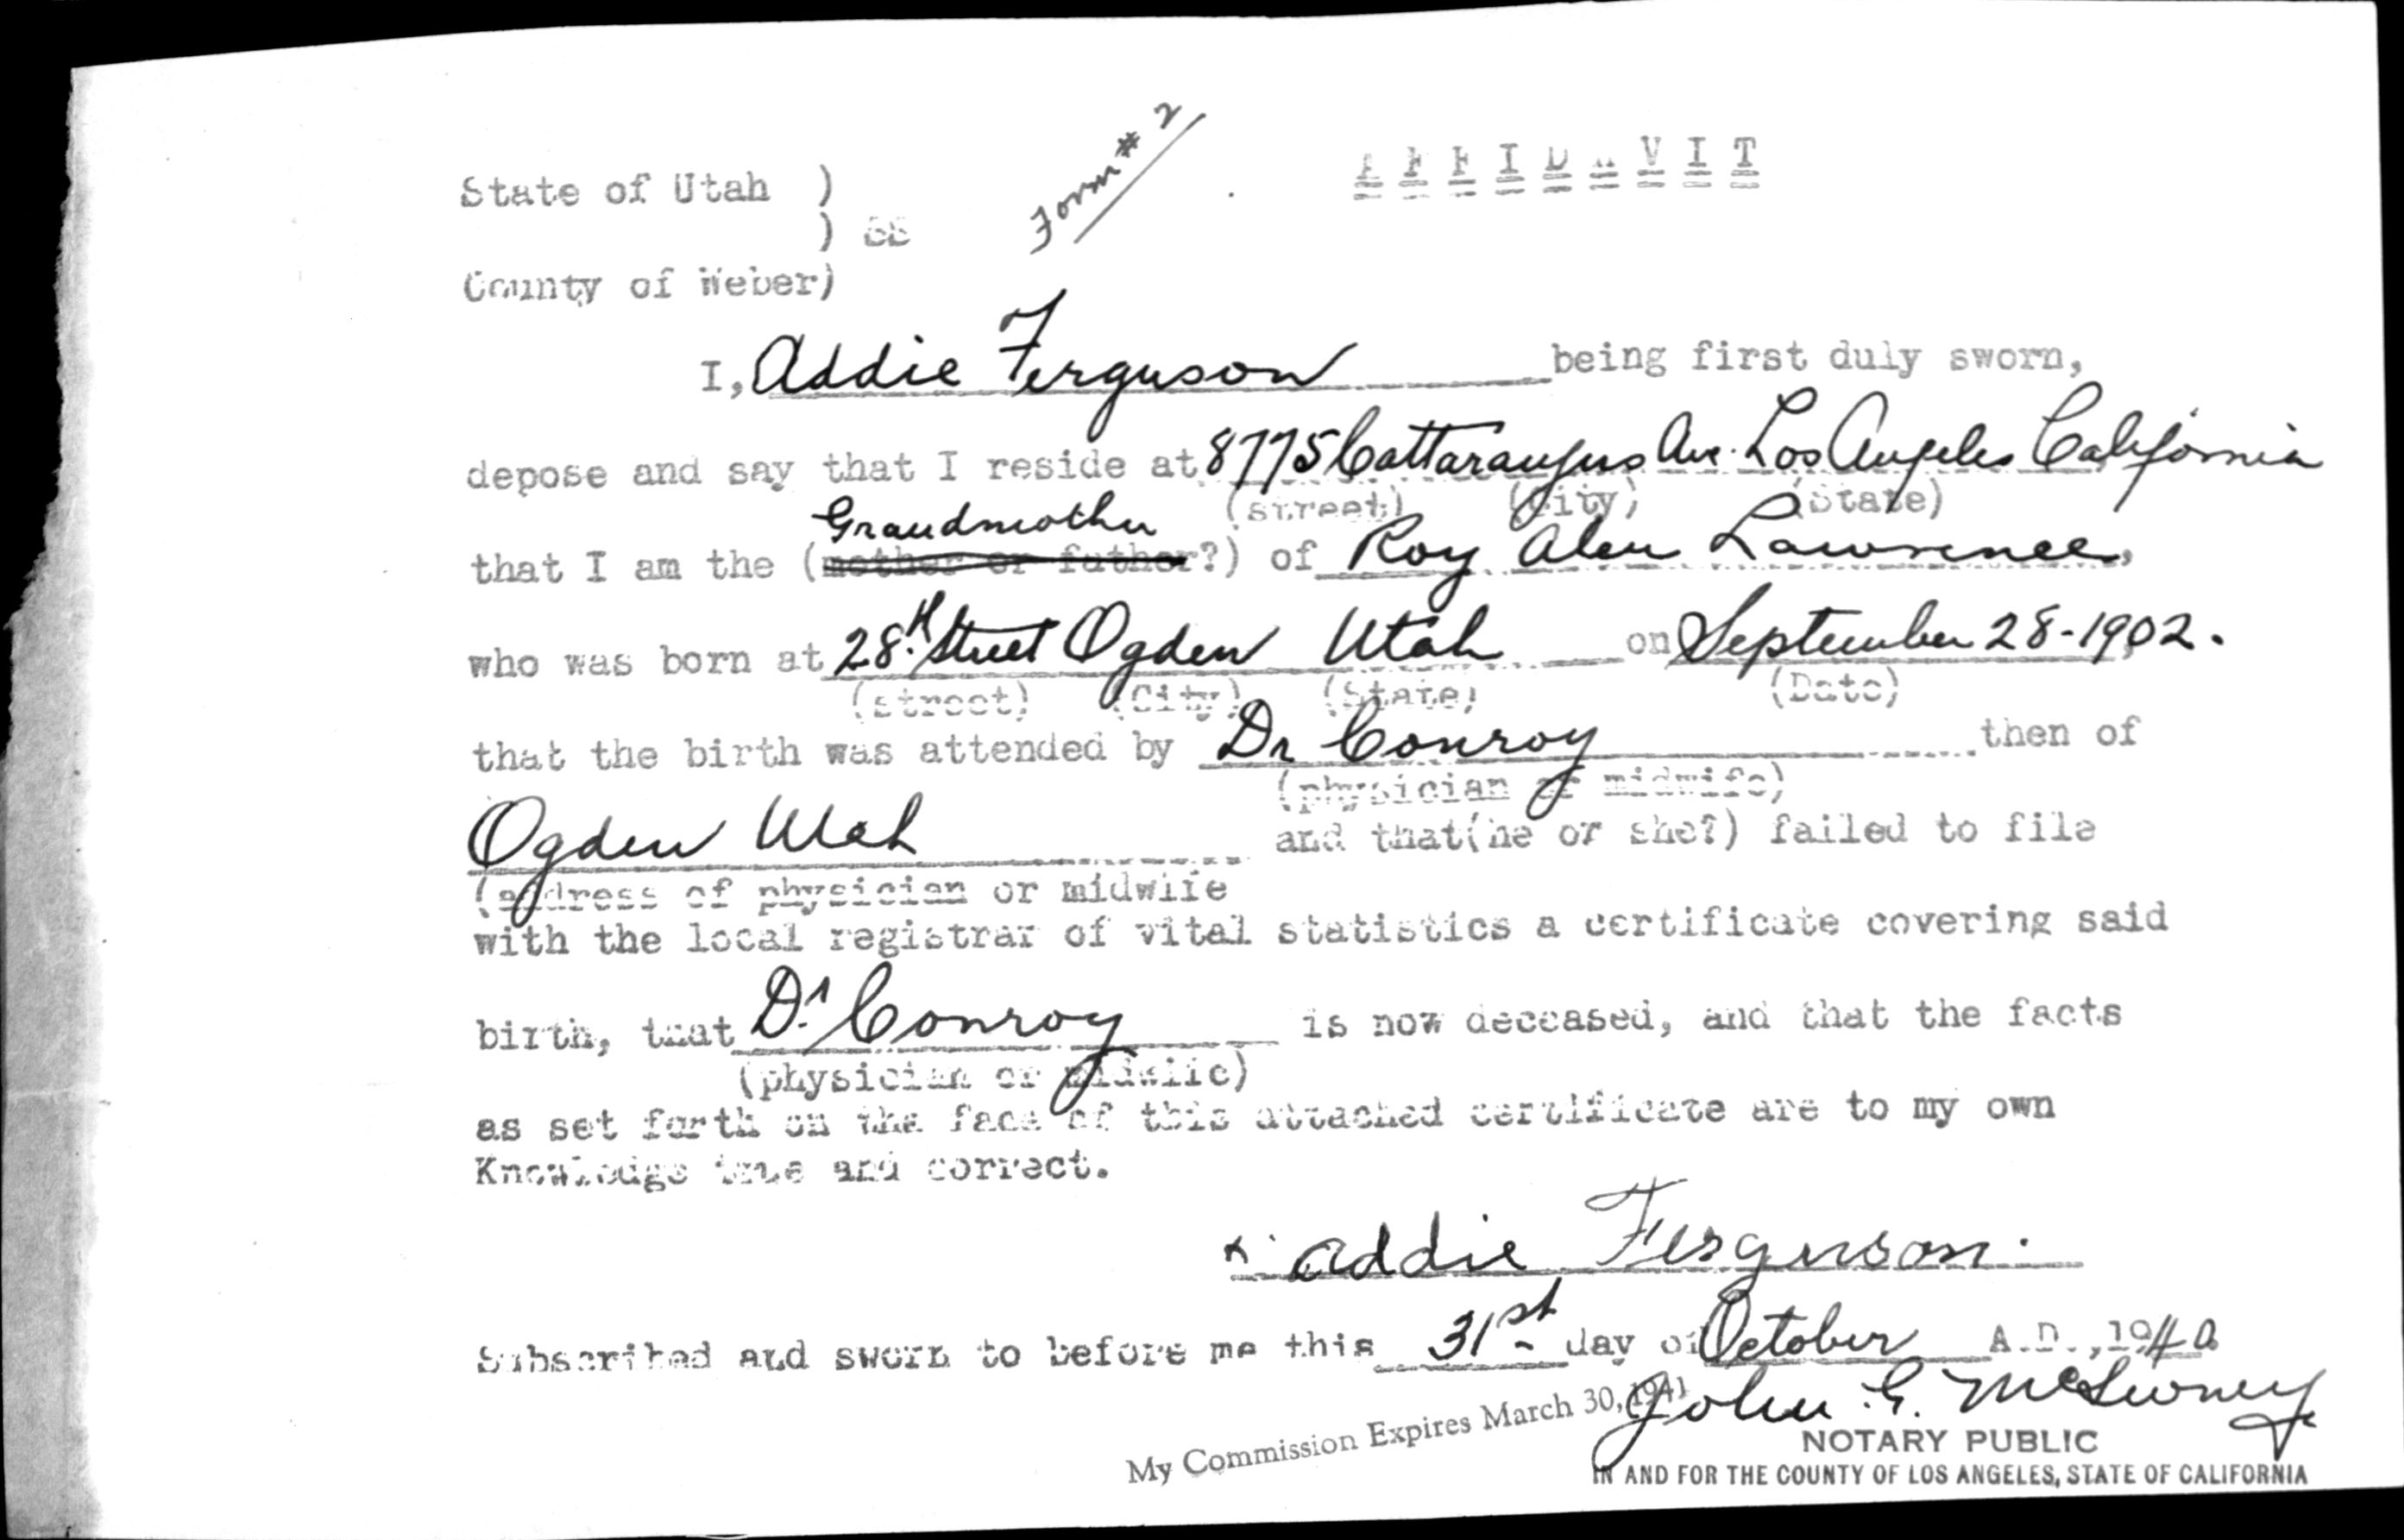 Form # 2
AFFIDAVIT
State of Utah )
) SS
County of Weber)
I, Addie Ferguson being first duly sworn,
depose and say that I reside at 8775 Cattaraugus Ave. Los Angeles California
(street) (City) (State)
Grandmother
that I am the (mother or father?) of Roy Alen Lawrence,
who was born at 28th Street Ogden Utah on September 28-1902.
(street) (City) (State) (Date)
that the birth was attended by Dr Conroy then of
(physician or midwife)
Ogden Utah and that(he or she?) failed to file
(address of physician or midwife
with the local registrar of vital statistics a certificate covering said
birth, that Dr. Conroy is now deceased, and that the facts
(physician or midwife)
as set forth on the face of this attached certificate are to my own
Knowledge true and correct.
x Addie Ferguson.
Subscribed and sworn to before me this 31st day of October A.D., 1940
My Commission Expires March 30, 1941
John G.
NOTARY PUBLIC
IN AND FOR THE COUNTY OF LOS ANGELES, STATE OF CALIFORNIA